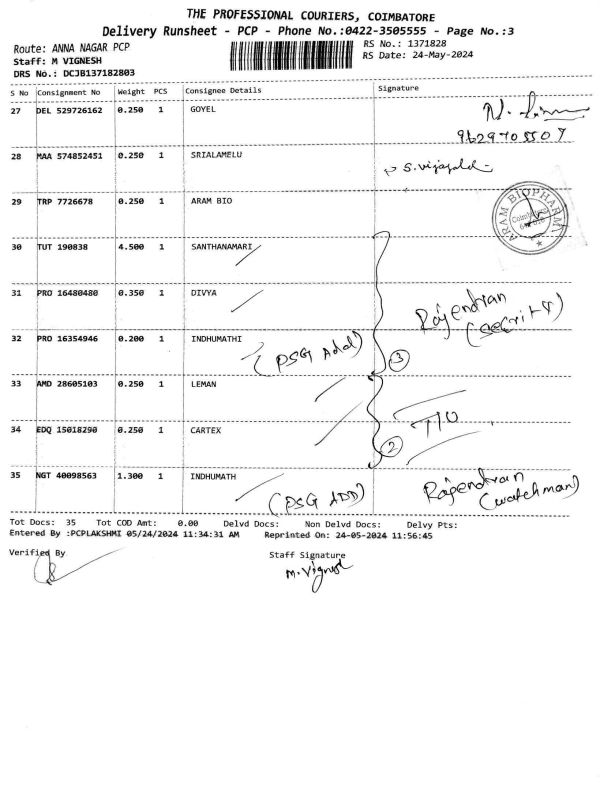 THE PROFESSIONAL COURIERS, COIMBATORE
Delivery Runsheet - PCP - Phone No.:0422-3505555 - Page No.:3
Route: ANNA NAGAR PCP
Staff: M VIGNESH
DRS No.: DCJB137182803
RS No.: 1371828
RS Date: 24-May-2024
S No Consignment No Weight PCS Consignee Details Signature
27 DEL 529726162 0.250 1 GOYEL
9629705507
28 MAA 574852451 0.250 1 SRIALAMELU
29 TRP 7726678 0.250 1 ARAM BIO
ARAM BIOPHARM
Coimbatore
30 TUT 190838 4.500 1 SANTHANAMARI
31 PRO 16480480 0.350 1 DIVYA
Rajendran
(security)
32 PRO 16354946 0.200 1 INDHUMATHI
(PSG Add) 3
33 AMD 28605103 0.250 1 LEMAN
34 EDQ 15018290 0.250 1 CARTEX
2
35 NGT 40098563 1.300 1 INDHUMATH
(PSG ADD)
Rajendran
(watchman)
Tot Docs: 35 Tot COD Amt: 0.00 Delvd Docs: Non Delvd Docs: Delvy Pts:
Entered By :PCPLAKSHMI 05/24/2024 11:34:31 AM Reprinted On: 24-05-2024 11:56:45
Verified By
Staff Signature
M. Vignesh